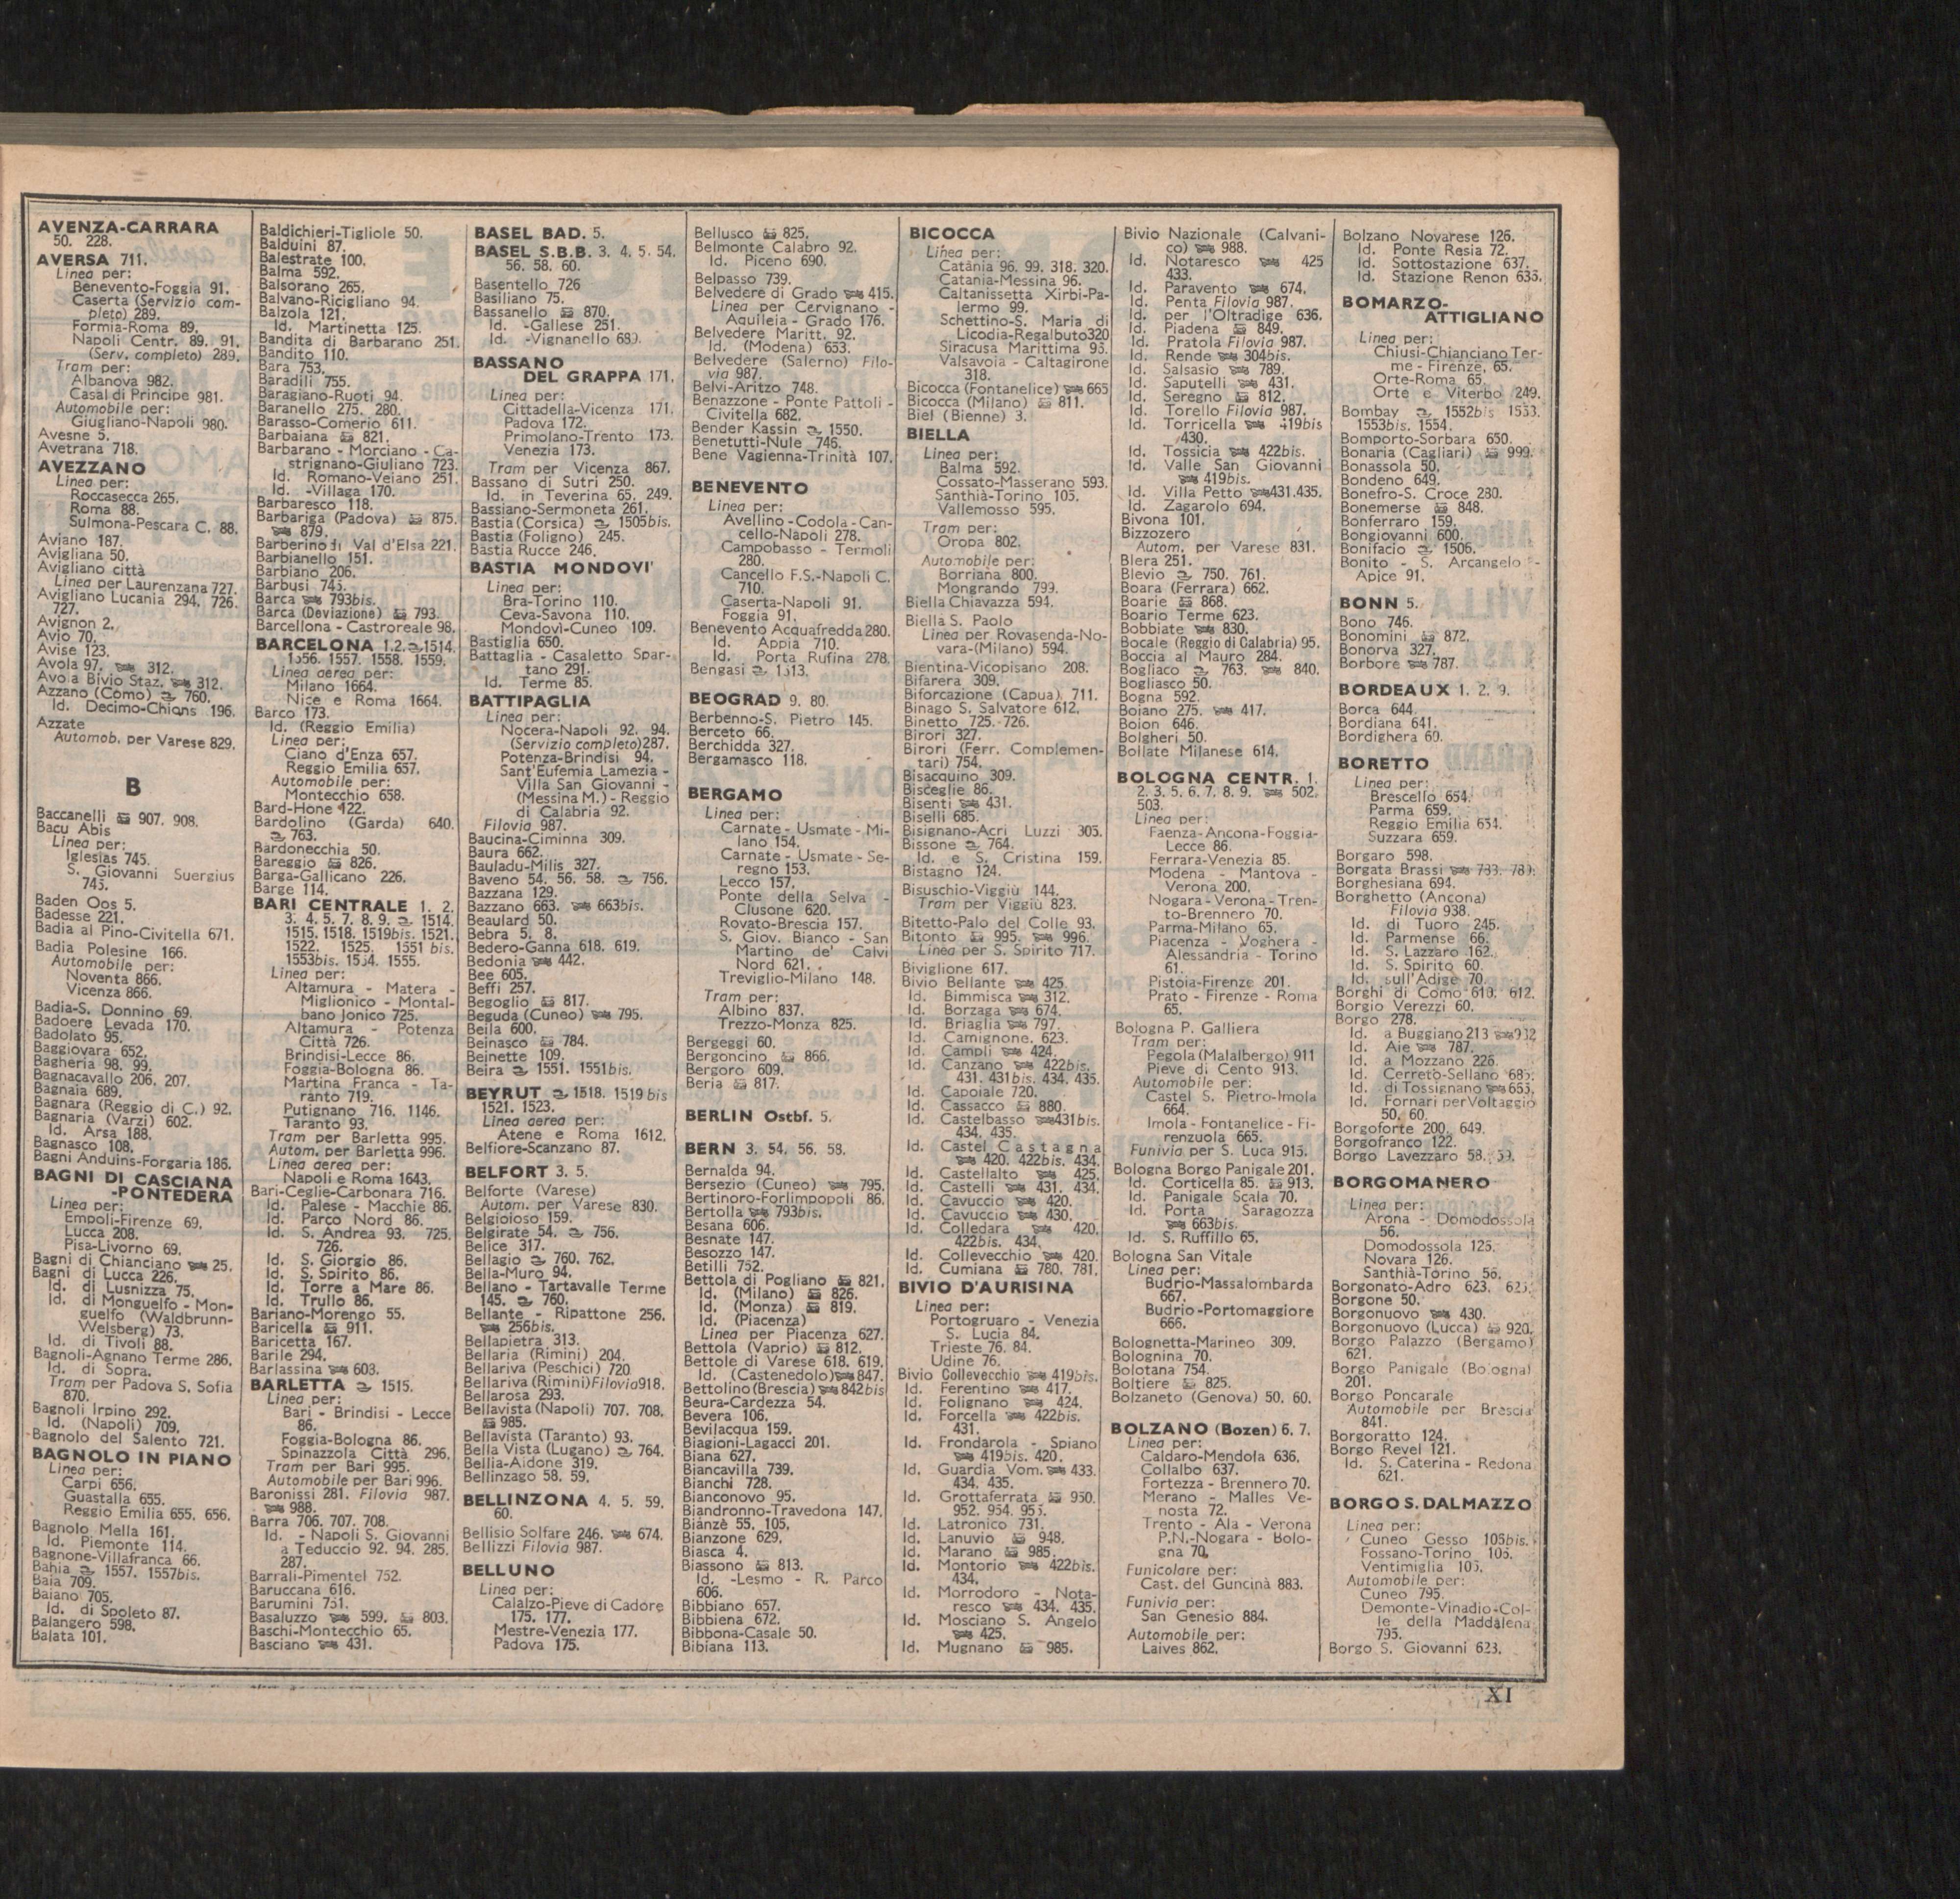 AVENZA-CARRARA
50. 228.
AVERSA 711.
Linea per:
Benevento-Foggia 91.
Caserta (Servizio com-
pleto) 289.
Formia-Roma 89.
Napoli Centr. 89. 91.
(Serv. completo) 289.
Tram per:
Albanova 982.
Casal di Principe 981.
Automobile per:
Giugliano-Napoli 980.
Avesne 5.
Avetrana 718.
AVEZZANO
Linea per:
Roccasecca 265.
Roma 88.
Sulmona-Pescara C. 88.
Aviano 187.
Avigliana 50.
Avigliano città
Linea per Laurenzana 727.
Avigliano Lucania 294. 726.
727.
Avignon 2.
Avio 70.
Avise 123.
Avola 97. 312.
Avola Bivio Staz. 312.
Azzano (Como) 760.
Id. Decimo-Chions 196.
Azzate
Automob. per Varese 829.
B
Baccanelli 907. 908.
Bacu Abis
Linea per:
Iglesias 745.
S. Giovanni Suergius
745.
Baden Oos 5.
Badesse 221.
Badia al Pino-Civitella 671.
Badia Polesine 166.
Automobile per:
Noventa 866.
Vicenza 866.
Badia-S. Donnino 69.
Badoere Levada 170.
Badolato 95.
Baggiovara 652.
Bagheria 98. 99.
Bagnacavallo 206. 207.
Bagnaia 689.
Bagnara (Reggio di C.) 92.
Bagnaria (Varzi) 602.
Id. Arsa 188.
Bagnasco 108.
Bagni Anduins-Forgaria 186.
BAGNI DI CASCIANA
-PONTEDERA
Linea per:
Empoli-Firenze 69.
Lucca 208.
Pisa-Livorno 69.
Bagni di Chianciano 25.
Bagni di Lucca 226.
Id. di Lusnizza 75.
Id. di Monguelfo - Mon-
guelfo (Waldbrunn-
Welsberg) 73.
Id. di Tivoli 88.
Bagnoli-Agnano Terme 286.
Id. di Sopra.
Tram per Padova S. Sofia
870.
Bagnoli Irpino 292.
Id. (Napoli) 709.
Bagnolo del Salento 721.
BAGNOLO IN PIANO
Linea per:
Carpi 656.
Guastalla 655.
Reggio Emilia 655. 656.
Bagnolo Mella 161.
Id. Piemonte 114.
Bagnone-Villafranca 66.
Bahia 1557. 1557bis.
Baia 709.
Baiano 705.
Id. di Spoleto 87.
Balangero 598.
Balata 101.
Baldichieri-Tigliole 50.
Balduini 87.
Balestrate 100.
Balma 592.
Balsorano 265.
Balvano-Ricigliano 94.
Balzola 121.
Id. Martinetta 125.
Bandita di Barbarano 251.
Bandito 110.
Bara 753.
Baradili 755.
Baragiano-Ruoti 94.
Baranello 275. 280.
Barasso-Comerio 611.
Barbaiana 821.
Barbarano - Morciano - Ca-
strignano-Giuliano 723.
Id. Romano-Veiano 251.
Id. -Villaga 170.
Barbaresco 118.
Barbariga (Padova) 875.
879.
Barberino di Val d'Elsa 221.
Barbianello 151.
Barbiano 206.
Barbusi 745.
Barca 793bis.
Barca (Deviazione) 793.
Barcellona - Castroreale 98.
BARCELONA 1. 2. 1514.
1556. 1557. 1558. 1559.
Linea aerea per:
Milano 1664.
Nice e Roma 1664.
Barco 173.
Id. (Reggio Emilia)
Linea per:
Ciano d'Enza 657.
Reggio Emilia 657.
Automobile per:
Montecchio 658.
Bard-Hone 122.
Bardolino (Garda) 640.
763.
Bardonecchia 50.
Bareggio 826.
Barga-Gallicano 226.
Barge 114.
BARI CENTRALE 1. 2.
3. 4. 5. 7. 8. 9. 1514.
1515. 1518. 1519bis. 1521.
1522. 1525. 1551 bis.
1553bis. 1554. 1555.
Linea per:
Altamura - Matera -
Miglionico - Montal-
bano Jonico 725.
Altamura - Potenza
Città 726.
Brindisi-Lecce 86.
Foggia-Bologna 86.
Martina Franca - Ta-
ranto 719.
Putignano 716. 1146.
Taranto 93.
Tram per Barletta 995.
Autom. per Barletta 996.
Linea aerea per:
Napoli e Roma 1643.
Bari-Ceglie-Carbonara 716.
Id. Palese - Macchie 86.
Id. Parco Nord 86.
Id. S. Andrea 93. 725.
726.
Id. S. Giorgio 86.
Id. S. Spirito 86.
Id. Torre a Mare 86.
Id. Trullo 86.
Bariano-Morengo 55.
Baricella 911.
Baricetta 167.
Barile 294.
Barlassina 603.
BARLETTA 1515.
Linea per:
Bari - Brindisi - Lecce
86.
Foggia-Bologna 86.
Spinazzola Città 296.
Tram per Bari 995.
Automobile per Bari 996.
Baronissi 281. Filovia 987.
988.
Barra 706. 707. 708.
Id. - Napoli S. Giovanni
a Teduccio 92. 94. 285.
287.
Barrali-Pimentel 752.
Baruccana 616.
Barumini 751.
Basaluzzo 599. 803.
Baschi-Montecchio 65.
Basciano 431.
BASEL BAD. 5.
BASEL S.B.B. 3. 4. 5. 54.
56. 58. 60.
Basentello 726
Basiliano 75.
Bassanello 870.
Id. -Gallese 251.
Id. -Vignanello 689.
BASSANO
DEL GRAPPA 171.
Linea per:
Cittadella-Vicenza 171.
Padova 172.
Primolano-Trento 173.
Venezia 173.
Tram per Vicenza 867.
Bassano di Sutri 250.
Id. in Teverina 65. 249.
Bassiano-Sermoneta 261.
Bastia (Corsica) 1505bis.
Bastia (Foligno) 245.
Bastia Rucce 246.
BASTIA MONDOVI'
Linea per:
Bra-Torino 110.
Ceva-Savona 110.
Mondovì-Cuneo 109.
Bastiglia 650.
Battaglia - Casaletto Spar-
tano 291.
Id. Terme 85.
BATTIPAGLIA
Linea per:
Nocera-Napoli 92. 94.
(Servizio completo) 287.
Potenza-Brindisi 94.
Sant'Eufemia Lamezia -
Villa San Giovanni -
(Messina M.) - Reggio
di Calabria 92.
Filovia 987.
Baucina-Ciminna 309.
Baura 662.
Bauladu-Milis 327.
Baveno 54. 56. 58. 756.
Bazzana 129.
Bazzano 663. 663bis.
Beaulard 50.
Bebra 5. 8.
Bedero-Ganna 618. 619.
Bedonia 442.
Bee 605.
Beffi 257.
Begoglio 817.
Beguda (Cuneo) 795.
Beila 600.
Beinasco 784.
Beinette 109.
Beira 1551. 1551bis.
BEYRUT 1518. 1519 bis
1521. 1523.
Linea aerea per:
Atene e Roma 1612.
Belfiore-Scanzano 87.
BELFORT 3. 5.
Belforte (Varese)
Autom. per Varese 830.
Belgioioso 159.
Belgirate 54. 756.
Belice 317.
Bellagio 760. 762.
Bella-Muro 94.
Bellano - Tartavalle Terme
145. 760.
Bellante - Ripattone 256.
256bis.
Bellapietra 313.
Bellaria (Rimini) 204.
Bellariva (Peschici) 720
Bellariva (Rimini) Filovia 918.
Bellarosa 293.
Bellavista (Napoli) 707. 708.
985.
Bellavista (Taranto) 93.
Bella Vista (Lugano) 764.
Bellia-Aidone 319.
Bellinzago 58. 59.
BELLINZONA 4. 5. 59.
60.
Bellisio Solfare 246. 674.
Bellizzi Filovia 987.
BELLUNO
Linea per:
Calalzo-Pieve di Cadore
175. 177.
Mestre-Venezia 177.
Padova 175.
Bellusco 825.
Belmonte Calabro 92.
Id. Piceno 690.
Belpasso 739.
Belvedere di Grado 415.
Linea per Cervignano -
Aquileia - Grado 176.
Belvedere Maritt. 92.
Id. (Modena) 653.
Belvedere (Salerno) Filo-
via 987.
Belvi-Aritzo 748.
Benazzone - Ponte Pattoli -
Civitella 682.
Bender Kassin 1550.
Benetutti-Nule 746.
Bene Vagienna-Trinità 107.
BENEVENTO
Linea per:
Avellino - Codola - Can-
cello-Napoli 278.
Campobasso - Termoli
280.
Cancello F.S.-Napoli C.
710.
Caserta-Napoli 91.
Foggia 91.
Benevento Acquafredda 280.
Id. Appia 710.
Id. Porta Rufina 278.
Bengasi 1513.
BEOGRAD 9. 80.
Berbenno-S. Pietro 145.
Berceto 66.
Berchidda 327.
Bergamasco 118.
BERGAMO
Linea per:
Carnate - Usmate - Mi-
lano 154.
Carnate - Usmate - Se-
regno 153.
Lecco 157.
Ponte della Selva -
Clusone 620.
Rovato-Brescia 157.
S. Giov. Bianco - San
Martino de' Calvi
Nord 621.
Treviglio-Milano 148.
Tram per:
Albino 837.
Trezzo-Monza 825.
Bergeggi 60.
Bergoncino 866.
Bergoro 609.
Beria 817.
BERLIN Ostbf. 5.
BERN 3. 54. 56. 58.
Bernalda 94.
Bersezio (Cuneo) 795.
Bertinoro-Forlimpopoli 86.
Bertolla 793bis.
Besana 606.
Besnate 147.
Besozzo 147.
Betilli 752.
Bettola di Pogliano 821.
Id. (Milano) 826.
Id. (Monza) 819.
Id. (Piacenza)
Linea per Piacenza 627.
Bettola (Vaprio) 812.
Bettole di Varese 618. 619.
Id. (Castenedolo) 847.
Bettolino (Brescia) 842bis
Beura-Cardezza 54.
Bevera 106.
Bevilacqua 159.
Biagioni-Lagacci 201.
Biana 627.
Biancavilla 739.
Bianchi 728.
Bianconovo 95.
Biandronno-Travedona 147.
Bianzè 55. 105.
Bianzone 629.
Biasca 4.
Biassono 813.
Id. -Lesmo - R. Parco
606.
Bibbiano 657.
Bibbiena 672.
Bibbona-Casale 50.
Bibiana 113.
BICOCCA
Linea per:
Catania 96. 99. 318. 320.
Catania-Messina 96.
Caltanissetta Xirbi-Pa-
lermo 99.
Schettino-S. Maria di
Licodia-Regalbuto 320
Siracusa Marittima 96.
Valsavoia - Caltagirone
318.
Bicocca (Fontanelice) 665
Bicocca (Milano) 811.
Biel (Bienne) 3.
BIELLA
Linea per:
Balma 592.
Cossato-Masserano 593.
Santhià-Torino 105.
Vallemosso 595.
Tram per:
Oropa 802.
Automobile per:
Borriana 800.
Mongrando 799.
Biella Chiavazza 594.
Biella S. Paolo
Linea per Rovasenda-No-
vara-(Milano) 594.
Bientina-Vicopisano 208.
Bifarera 309.
Biforcazione (Capua). 711.
Binago S. Salvatore 612.
Binetto 725. 726.
Birori 327.
Birori (Ferr. Complemen-
tari) 754.
Bisacquino 309.
Bisceglie 86.
Bisenti 431.
Biselli 685.
Bisignano-Acri Luzzi 305.
Bissone 764.
Id. e S. Cristina 159.
Bistagno 124.
Bisuschio-Viggiù 144.
Tram per Viggiù 823.
Bitetto-Palo del Colle 93.
Bitonto 995. 996.
Linea per S. Spirito 717.
Biviglione 617.
Bivio Bellante 425.
Id. Bimmisca 312.
Id. Borzaga 674.
Id. Briaglia 797.
Id. Camignone. 623.
Id. Campli 424.
Id. Canzano 422bis.
431. 431bis. 434. 435.
Id. Capoiale 720.
Id. Cassacco 880.
Id. Castelbasso 431bis.
434. 435.
Id. Castel Castagna
420. 422bis. 434.
Id. Castellalto 425.
Id. Castelli 431. 434.
Id. Cavuccio 420.
Id. Cavuccio 430.
Id. Colledara 420.
422bis. 434.
Id. Collevecchio 420.
Id. Cumiana 780. 781.
BIVIO D'AURISINA
Linea per:
Portogruaro - Venezia
S. Lucia 84.
Trieste 76. 84.
Udine 76.
Bivio Collevecchio 419bis.
Id. Ferentino 417.
Id. Folignano 424.
Id. Forcella 422bis.
431.
Id. Frondarola - Spiano
419bis. 420.
Id. Guardia Vom. 433.
434. 435.
Id. Grottaferrata 950.
952. 954. 955.
Id. Latronico 731.
Id. Lanuvio 948.
Id. Marano 985.
Id. Montorio 422bis.
434.
Id. Morrodoro - Nota-
resco 434. 435.
Id. Mosciano S. Angelo
425.
Id. Mugnano 985.
Bivio Nazionale (Calvani-
co) 988.
Id. Notaresco 425
433.
Id. Paravento 674.
Id. Penta Filovia 987.
Id. per l'Oltradige 636.
Id. Piadena 849.
Id. Pratola Filovia 987.
Id. Rende 304bis.
Id. Salsasio 789.
Id. Saputelli 431.
Id. Seregno 812.
Id. Torello Filovia 987.
Id. Torricella 419bis
430.
Id. Tossicia 422bis.
Id. Valle San Giovanni
419bis.
Id. Villa Petto 431. 435.
Id. Zagarolo 694.
Bivona 101.
Bizzozero
Autom. per Varese 831.
Blera 251.
Blevio 750. 761.
Boara (Ferrara) 662.
Boarie 868.
Boario Terme 623.
Bobbiate 830.
Bocale (Reggio di Calabria) 95.
Boccia al Mauro 284.
Bogliaco 763. 840.
Bogliasco 50.
Bogna 592.
Boiano 275. 417.
Boion 646.
Bolgheri 50.
Bollate Milanese 614.
BOLOGNA CENTR. 1.
2. 3. 5. 6. 7. 8. 9. 502.
503.
Linea per:
Faenza-Ancona-Foggia-
Lecce 86.
Ferrara-Venezia 85.
Modena - Mantova -
Verona 200.
Nogara - Verona - Tren-
to-Brennero 70.
Parma-Milano 65.
Piacenza - Voghera -
Alessandria - Torino
61.
Pistoia-Firenze 201.
Prato - Firenze - Roma
65.
Bologna P. Galliera
Tram per:
Pegola (Malalbergo) 911
Pieve di Cento 913.
Automobile per:
Castel S. Pietro-Imola
664.
Imola - Fontanelice - Fi-
renzuola 665.
Funivia per S. Luca 915.
Bologna Borgo Panigale 201.
Id. Corticella 85. 913.
Id. Panigale Scala 70.
Id. Porta Saragozza
663bis.
Id. S. Ruffillo 65.
Bologna San Vitale
Linea per:
Budrio-Massalombarda
667.
Budrio-Portomaggiore
666.
Bolognetta-Marineo 309.
Bolognina 70.
Bolotana 754.
Boltiere 825.
Bolzaneto (Genova) 50. 60.
BOLZANO (Bozen) 6. 7.
Linea per:
Caldaro-Mendola 636.
Collalbo 637.
Fortezza - Brennero 70.
Merano - Malles Ve-
nosta 72.
Trento - Ala - Verona
P.N.-Nogara - Bolo-
gna 70.
Funicolare per:
Cast. del Guncinà 883.
Funivia per:
San Genesio 884.
Automobile per:
Laives 862.
Bolzano Novarese 126.
Id. Ponte Resia 72.
Id. Sottostazione 637.
Id. Stazione Renon 636.
BOMARZO-
ATTIGLIANO
Linea per:
Chiusi-Chianciano Ter-
me - Firenze. 65.
Orte-Roma 65.
Orte e Viterbo 249.
Bombay 1552bis 1553.
1553bis. 1554.
Bomporto-Sorbara 650.
Bonaria (Cagliari) 999.
Bonassola 50.
Bondeno 649.
Bonefro-S. Croce 280.
Bonemerse 848.
Bonferraro 159.
Bongiovanni 600.
Bonifacio 1506.
Bonito - S. Arcangelo -
Apice 91.
BONN 5.
Bono 746.
Bonomini 872.
Bonorva 327.
Borbore 787.
BORDEAUX 1. 2. 9.
Borca 644.
Bordiana 641.
Bordighera 60.
BORETTO
Linea per:
Brescello 654.
Parma 659.
Reggio Emilia 654.
Suzzara 659.
Borgaro 598.
Borgata Brassi 783. 789.
Borghesiana 694.
Borghetto (Ancona)
Filovia 938.
Id. di Tuoro 245.
Id. Parmense 66.
Id. S. Lazzaro 162.
Id. S. Spirito 60.
Id. sull'Adige 70.
Borghi di Como 610. 612.
Borgio Verezzi 60.
Borgo 278.
Id. a Buggiano 213 932
Id. Aie 787.
Id. a Mozzano 226.
Id. Cerreto-Sellano 685.
Id. di Tossignano 665.
Id. Fornari per Voltaggio
50. 60.
Borgoforte 200. 649.
Borgofranco 122.
Borgo Lavezzaro 58. 59.
BORGOMANERO
Linea per:
Arona - Domodossola
56.
Domodossola 126.
Novara 126.
Santhià-Torino 56.
Borgonato-Adro 623. 625.
Borgone 50.
Borgonuovo 430.
Borgonuovo (Lucca) 920.
Borgo Palazzo (Bergamo)
621.
Borgo Panigale (Bologna)
201.
Borgo Poncarale
Automobile per Brescia
841.
Borgoratto 124.
Borgo Revel 121.
Id. S. Caterina - Redona
621.
BORGO S. DALMAZZO
Linea per:
Cuneo Gesso 105bis.
Fossano-Torino 105.
Ventimiglia 105.
Automobile per:
Cuneo 795.
Demonte-Vinadio-Col-
le della Maddalena
795.
Borgo S. Giovanni 623.
XI